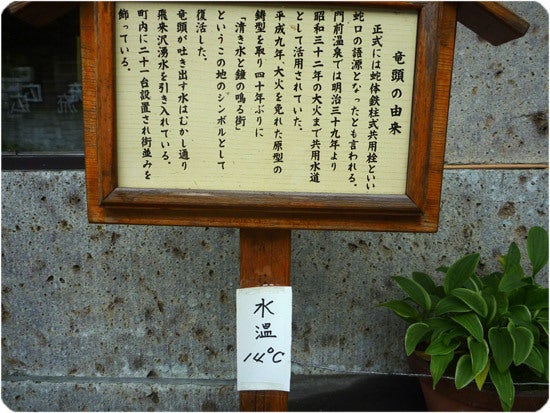 竜頭の由来
正式には蛇体鉄柱式共用栓といい
蛇口の語源となったとも言われる。
門前温泉では明治三十九年より
昭和三十二年の大火まで共用水道
として活用されていた。
平成九年、大火を免れた原型の
鋳型を取り四十年ぶりに
「清き水と鐘の鳴る街」
というこの地のシンボルとして
復活した。
竜頭が吐き出す水はむかし通り
飛来沢湧水を引き入れている。
町内に二十一台設置され街並みを
飾っている。
水温
14℃